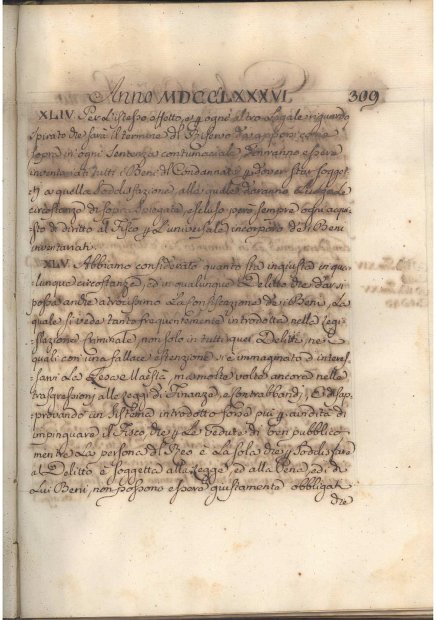 Anno MDCCLXXXVI. 309
XLIV. Per l'istesso effetto, e p ogni altro legale riguardo
spirato che sarà il termine di
sopra in ogni Sentenza contumaciale, dovranno essere
inventariati tutti i Beni di Condannati p dover star sogget-
ti a quella Soddisfazione alla quale daranno luogo le
circostanze di sopra spiegate, escluso però sempre ogni acqui-
sto di diritto al Fisco p l'universale incorporo dei Beni
inventariati.
XLV. Abbiamo considerato quanto sia ingiusta in qua-
lunque circostanza, ed in qualunque Delitto che dar si
possa anche atrocissimo la confiscazione dei Beni, la
quale si vede tanto frequentemente introdotta nella Legi-
slazione criminale, non solo in tutti quei Delitti, nei
quali con una fallace estenzione si è immaginata d'interes-
sarvi la Lesa Maestà, ma molte volte ancora nelle
trasgressioni alle Leggi di Finanze, e contrabbandi, e disap-
provando un sistema introdotto forse più p avidità di
impinguare il Fisco, che p le vedute di ben pubblico
mentre la persona di Reo è la sola che p soddisfare
al Delitto è soggetta alla Legge, ed alla Pena, ed i di
Lui Beni non possono essere giustamente obbligati
che